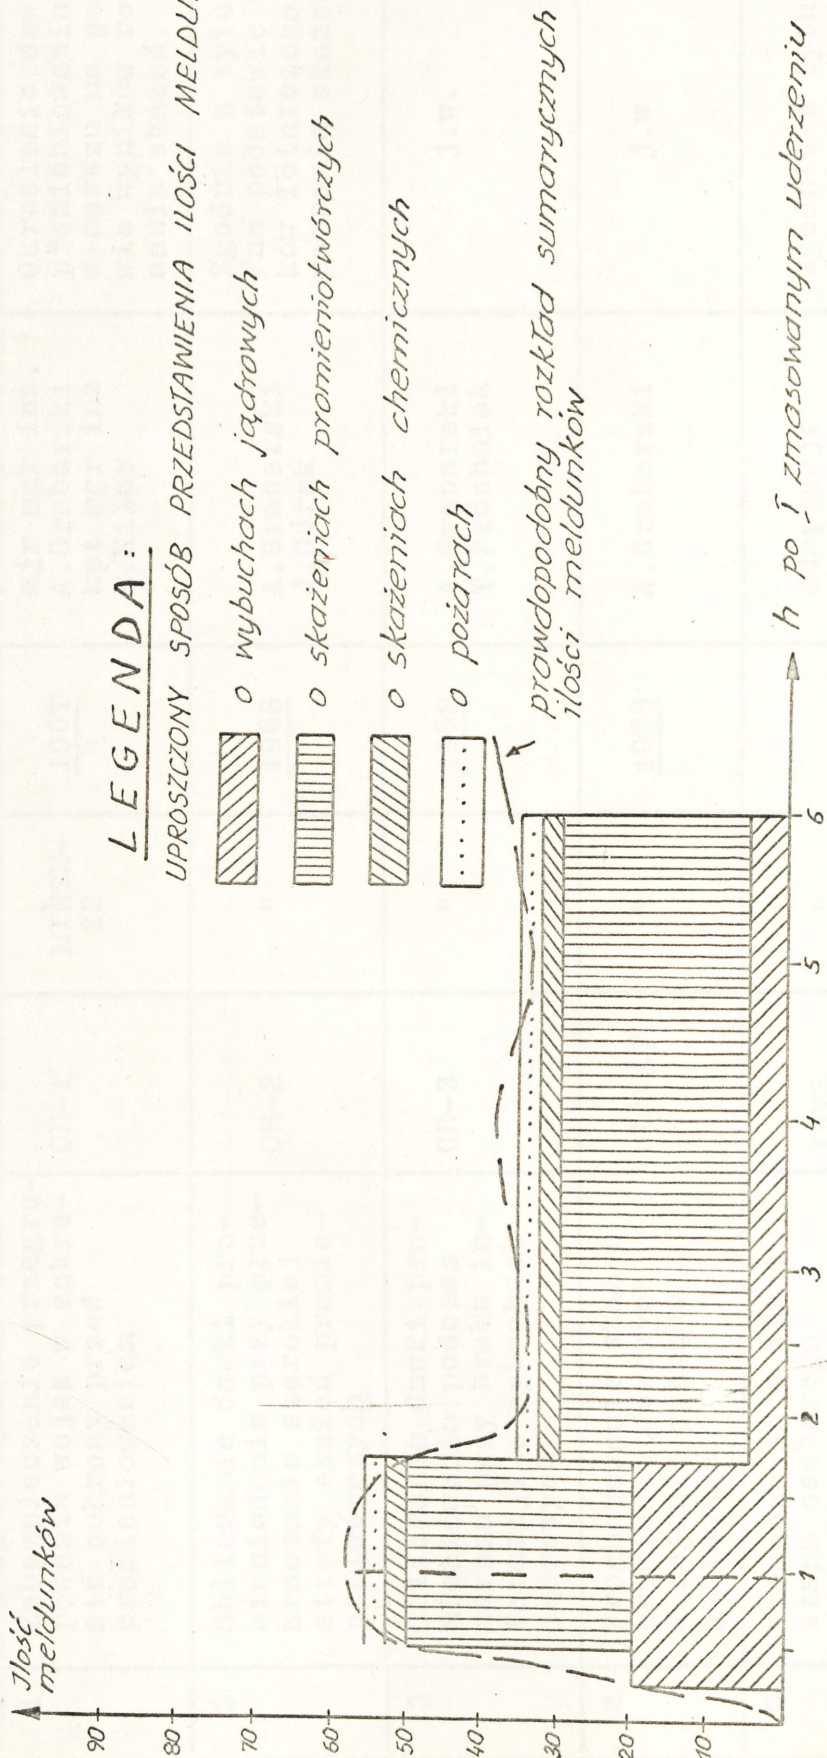 Ilość
meldunków
90
80
70
60
50
40
30
20
10
1
2
3
4
5
6
h po I zmasowanym uderzeniu
LEGENDA:
UPROSZCZONY SPOSÓB PRZEDSTAWIENIA ILOŚCI
o wybuchach jądrowych
o skażeniach promieniotwórczych
o skażeniach chemicznych
o pożarach
prawdopodobny rozkład sumarycznych
ilości meldunków